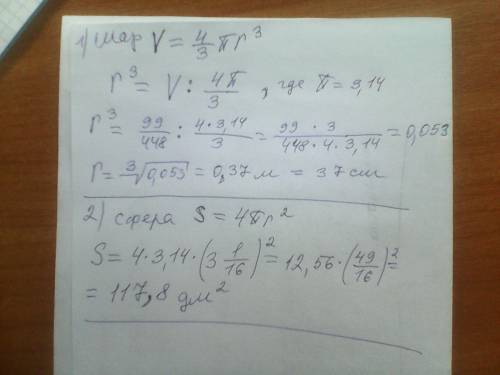 1) шар V = 4/3 πr³
r³ = V : 4π/3, где π = 3,14
r³ = 99/448 : 4·3,14/3 = 99·3/448·4·3,14 = 0,053
r = ∛0,053 = 0,37 м = 37 см
2) сфера S = 4πr²
S = 4·3,14·(3 1/16)² = 12,56·(49/16)² =
= 117,8 дм²